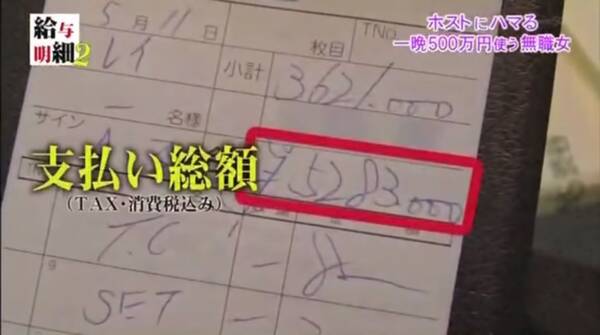 給与明細2
ホストにハマる
一晩500万円使う無職女
5月11日
TNo.
枚目
レイ
小計
3621.000
名様
サイン
支払い総額
(TAX・消費税込み)
¥5283.000
T.C
SET